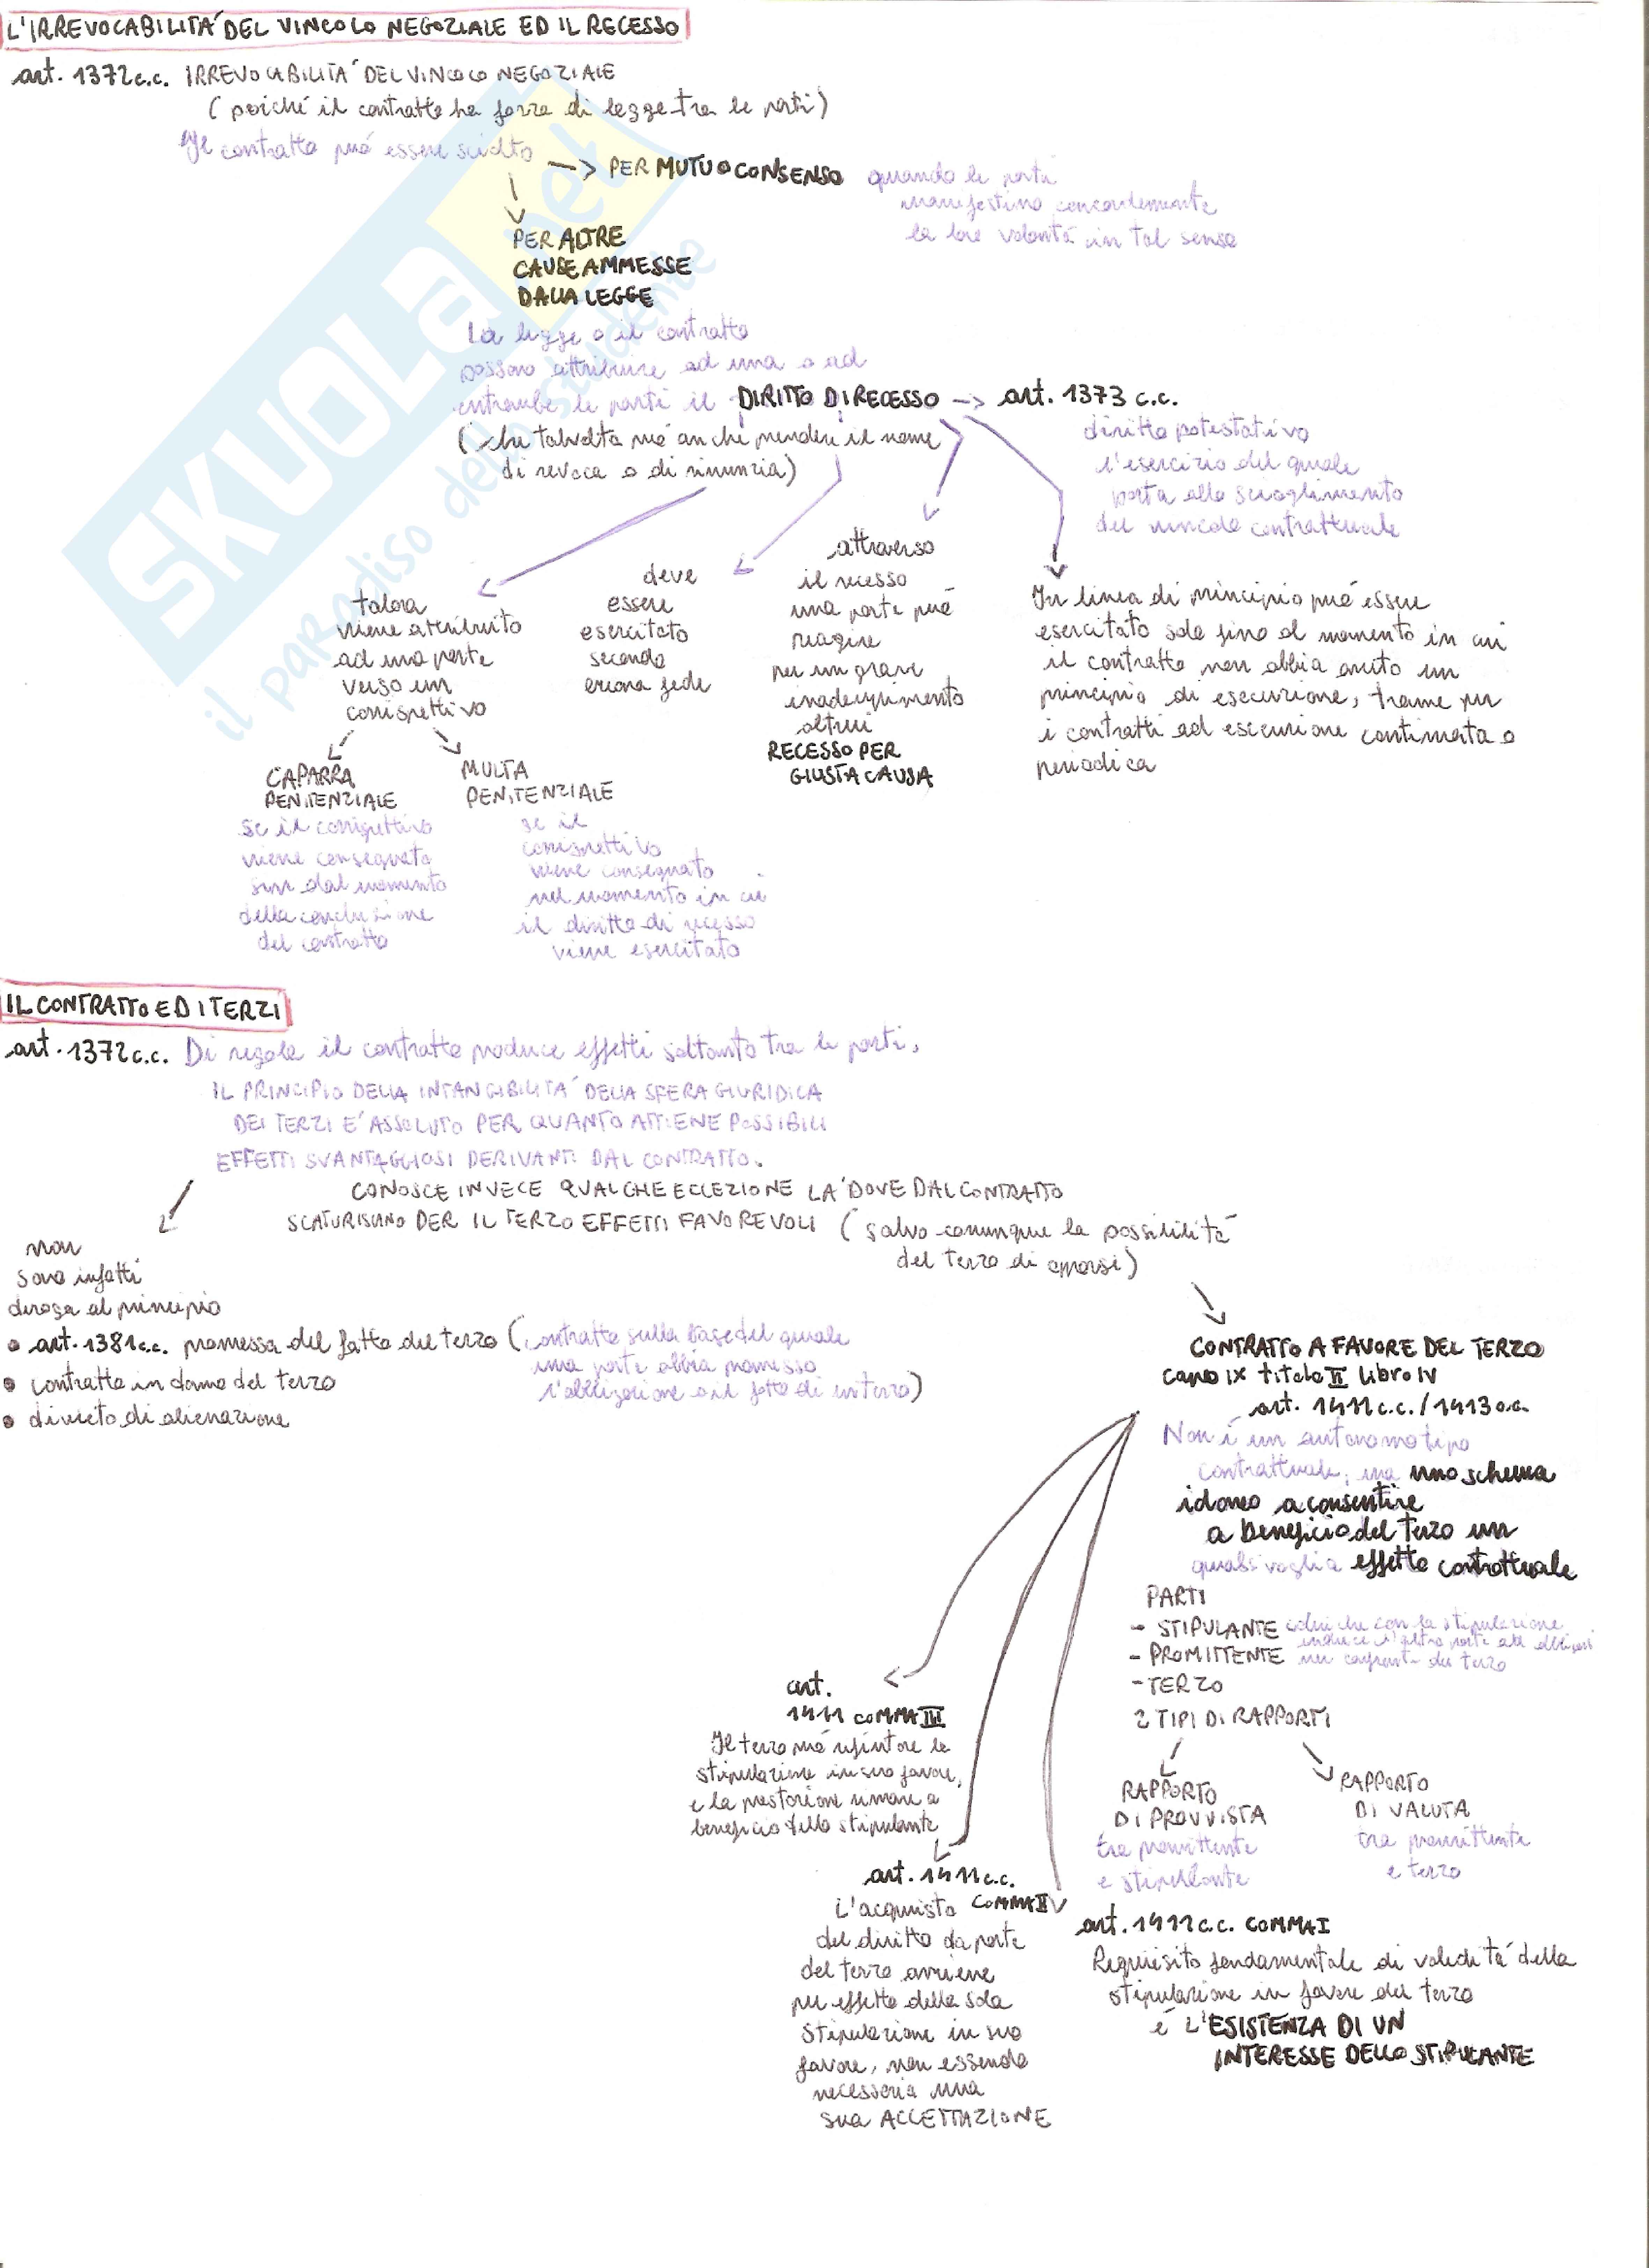 L'IRREVOCABILITA' DEL VINCOLO NEGOZIALE ED IL RECESSO
art. 1372 c.c. IRREVOCABILITA' DEL VINCOLO NEGOZIALE
(poiché il contratto ha forza di legge tra le parti)
Il contratto può essere sciolto
-> PER MUTUO CONSENSO quando le parti
manifestino concordemente
la loro volontà in tal senso
PER ALTRE
CAUSE AMMESSE
DALLA LEGGE
La legge o il contratto
possono attribuire ad una o ad
entrambe le parti il DIRITTO DI RECESSO -> art. 1373 c.c.
(che talvolta può anche prendere il nome
di revoca o di rinunzia)
diritto potestativo
l'esercizio del quale
porta allo scioglimento
del vincolo contrattuale
talora
viene attribuito
ad una parte
verso un
corrispettivo
CAPARRA
PENITENZIALE
se il corrispettivo
viene consegnato
sin dal momento
della conclusione
del contratto
MULTA
PENITENZIALE
se il
corrispettivo
viene consegnato
nel momento in cui
il diritto di recesso
viene esercitato
deve
essere
esercitato
secondo
buona fede
attraverso
il recesso
una parte può
reagire
per un grave
inadempimento
altrui
RECESSO PER
GIUSTA CAUSA
In linea di principio può essere
esercitato solo fino al momento in cui
il contratto non abbia avuto un
principio di esecuzione, tranne per
i contratti ad esecuzione continuata o
periodica
IL CONTRATTO ED I TERZI
art. 1372 c.c. Di regola il contratto produce effetti soltanto tra le parti.
IL PRINCIPIO DELLA INTANGIBILITA' DELLA SFERA GIURIDICA
DEI TERZI E' ASSOLUTO PER QUANTO ATTIENE POSSIBILI
EFFETTI SVANTAGGIOSI DERIVANTI DAL CONTRATTO.
CONOSCE INVECE QUALCHE ECCEZIONE LA' DOVE DAL CONTRATTO
SCATURISCANO PER IL TERZO EFFETTI FAVOREVOLI (salvo comunque la possibilità
del terzo di opporsi)
non
sono infatti
deroga al principio
• art. 1381 c.c. promessa del fatto del terzo (contratto sulla base del quale
una parte abbia promesso
l'obbligazione o il fatto di un terzo)
• contratto in danno del terzo
• divieto di alienazione
CONTRATTO A FAVORE DEL TERZO
capo IX titolo II libro IV
art. 1411 c.c. / 1413 c.c.
Non è un autonomo tipo
contrattuale, ma uno schema
idoneo a consentire
a beneficio del terzo un
qualsivoglia effetto contrattuale
PARTI
- STIPULANTE colui che con la stipulazione
induce l'altra parte ad obbligarsi
- PROMITTENTE nei confronti del terzo
- TERZO
2 TIPI DI RAPPORTI
RAPPORTO
DI PROVVISTA
tra promittente
e stipulante
RAPPORTO
DI VALUTA
tra promittente
e terzo
art.
1411 COMMA III
Il terzo può rifiutare la
stipulazione in suo favore,
e la prestazione rimane a
beneficio dello stipulante
art. 1411 c.c.
COMMA II
L'acquisto
del diritto da parte
del terzo avviene
per effetto della sola
stipulazione in suo
favore, non essendo
necessaria una
sua ACCETTAZIONE
art. 1411 c.c. COMMA I
Requisito fondamentale di validità della
stipulazione in favore del terzo
è L'ESISTENZA DI UN
INTERESSE DELLO STIPULANTE
SKUOLA.net
il paradiso dello studente